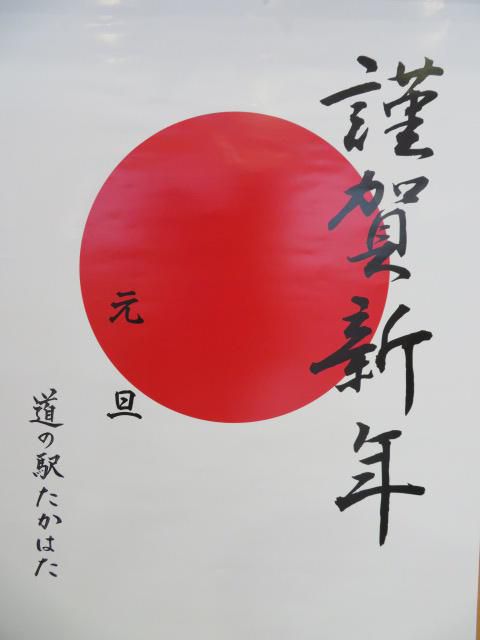 謹賀新年
元旦
道の駅たかはた